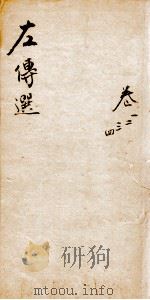 左傳選
卷一二三四
研狗
mtoou.info